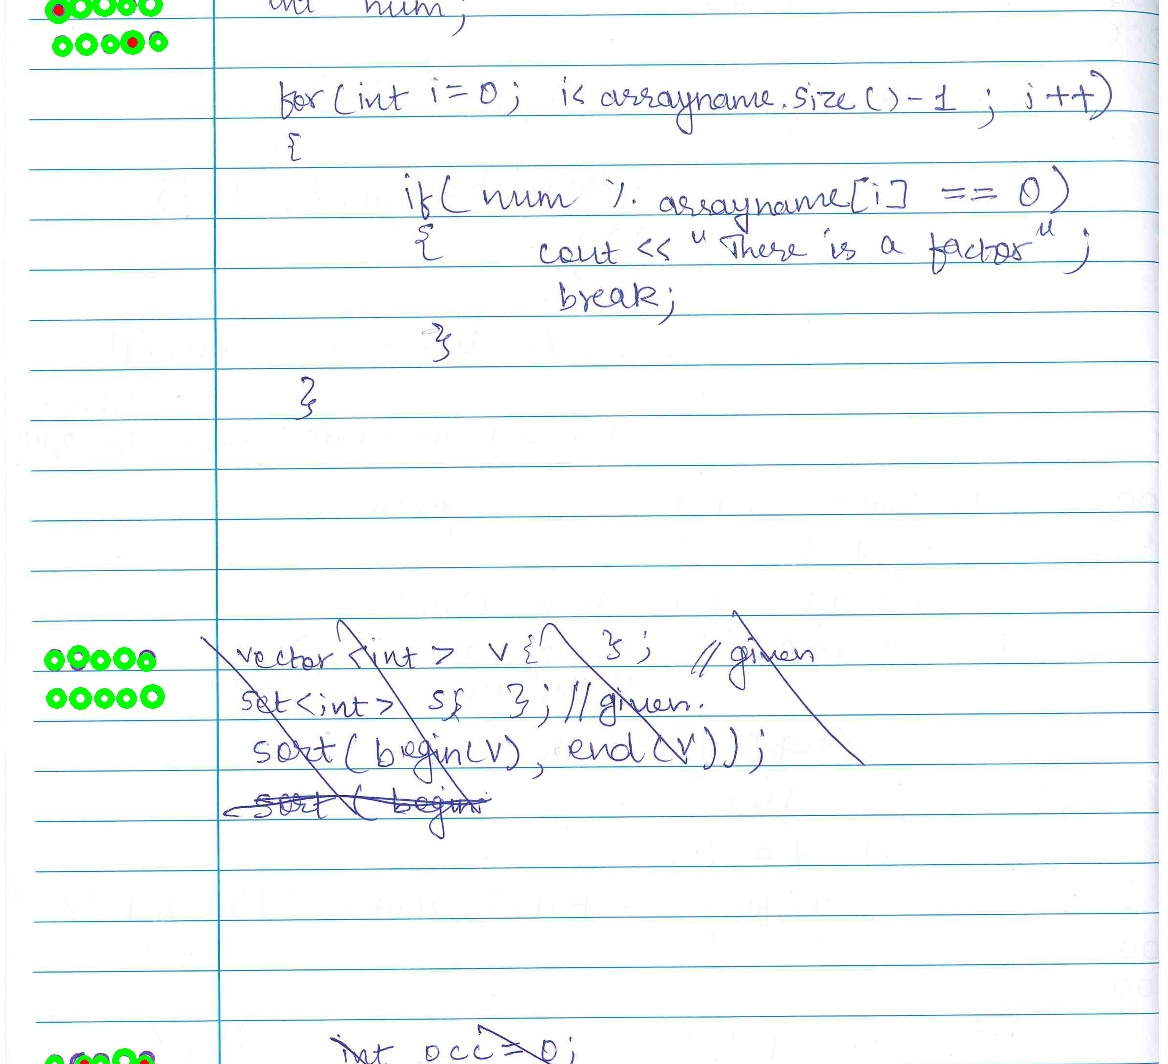 int num;
for (int i=0; i< arrayname.size()-1; i++)
{
if( num % arrayname[i] == 0)
{ cout << "There is a factor";
break;
}
}
vector <int> v{ }; // given
set<int> s{ }; // given.
sort( begin(v), end(v));
sort ( begin
int occ = 0;